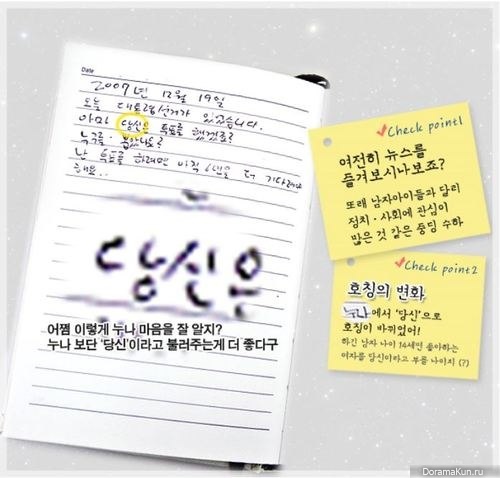 Date
2007년 12월 19일
오늘 대통령선거가 있었습니다.
아마 당신은 투표를 했겠죠?
누구를 뽑았나요?
난 투표를 하려면 아직 6년을 더 기다려야
해요..
당신은
어쩜 이렇게 누나 마음을 잘 알지?
누나 보단 '당신'이라고 불러주는게 더 좋다구
Check point1
여전히 뉴스를
즐겨보시나보죠?
또래 남자아이들과 달리
정치·사회에 관심이
많은 것 같은 중딩 수하
Check point2
호칭의 변화
누나에서 '당신'으로
호칭이 바뀌었어!
하긴 남자 나이 14세면 좋아하는
여자를 당신이라고 부를 나이지 (?)
DoramaKun.ru